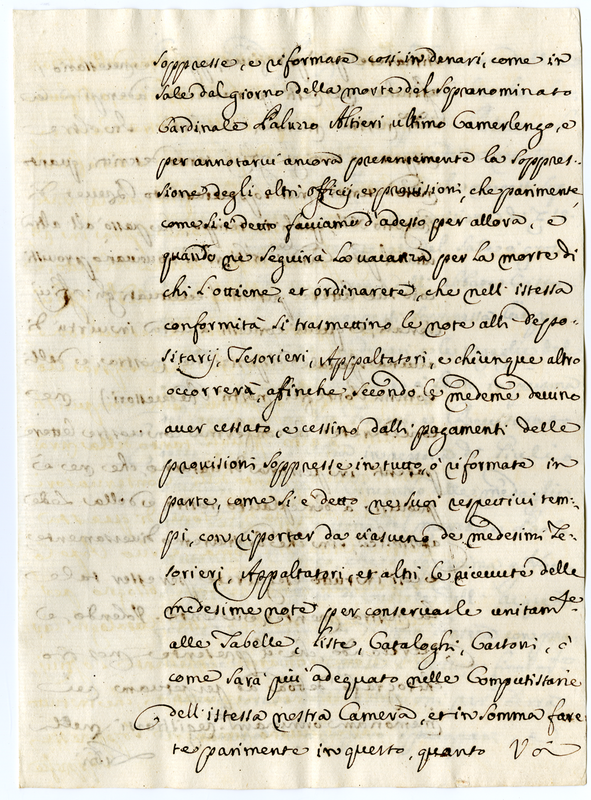 soppresse, e riformate così in denari, come in
sale dal giorno della morte del sopranominato
Cardinale Paluzzo Altieri ultimo Camerlengo, e
per annotarvi ancora presentemente la soppres=
sione degli altri offitij, e provisioni, che parimente,
come si è detto facciamo d'adesso per allora, e
quando ne seguirà la vacanza per la morte di
chi l'ottiene, et ordinarete, che nell'istessa
conformità si trasmettino le note alli depo=
sitarij, Tesorieri, Appaltatori, e chiunque altro
occorrerà, affinche secondo le medeme devino
aver cessato, e cessino dalli pagamenti delle
provisioni soppresse in tutto, ò riformate in
parte, come si è detto, ne suoi respettivi tem=
pi, con riportar da ciascuno de medesimi Te=
sorieri, Appaltatori, et altri le ricevute delle
medesime note per conservarle unitam.te
alle Tabelle, Liste, Cataloghi, Cartoni, ò
come sarà più adequato nelle Computistarie
dell'istessa nostra Camera, et in somma fare
te parimente in questo, quanto Voi